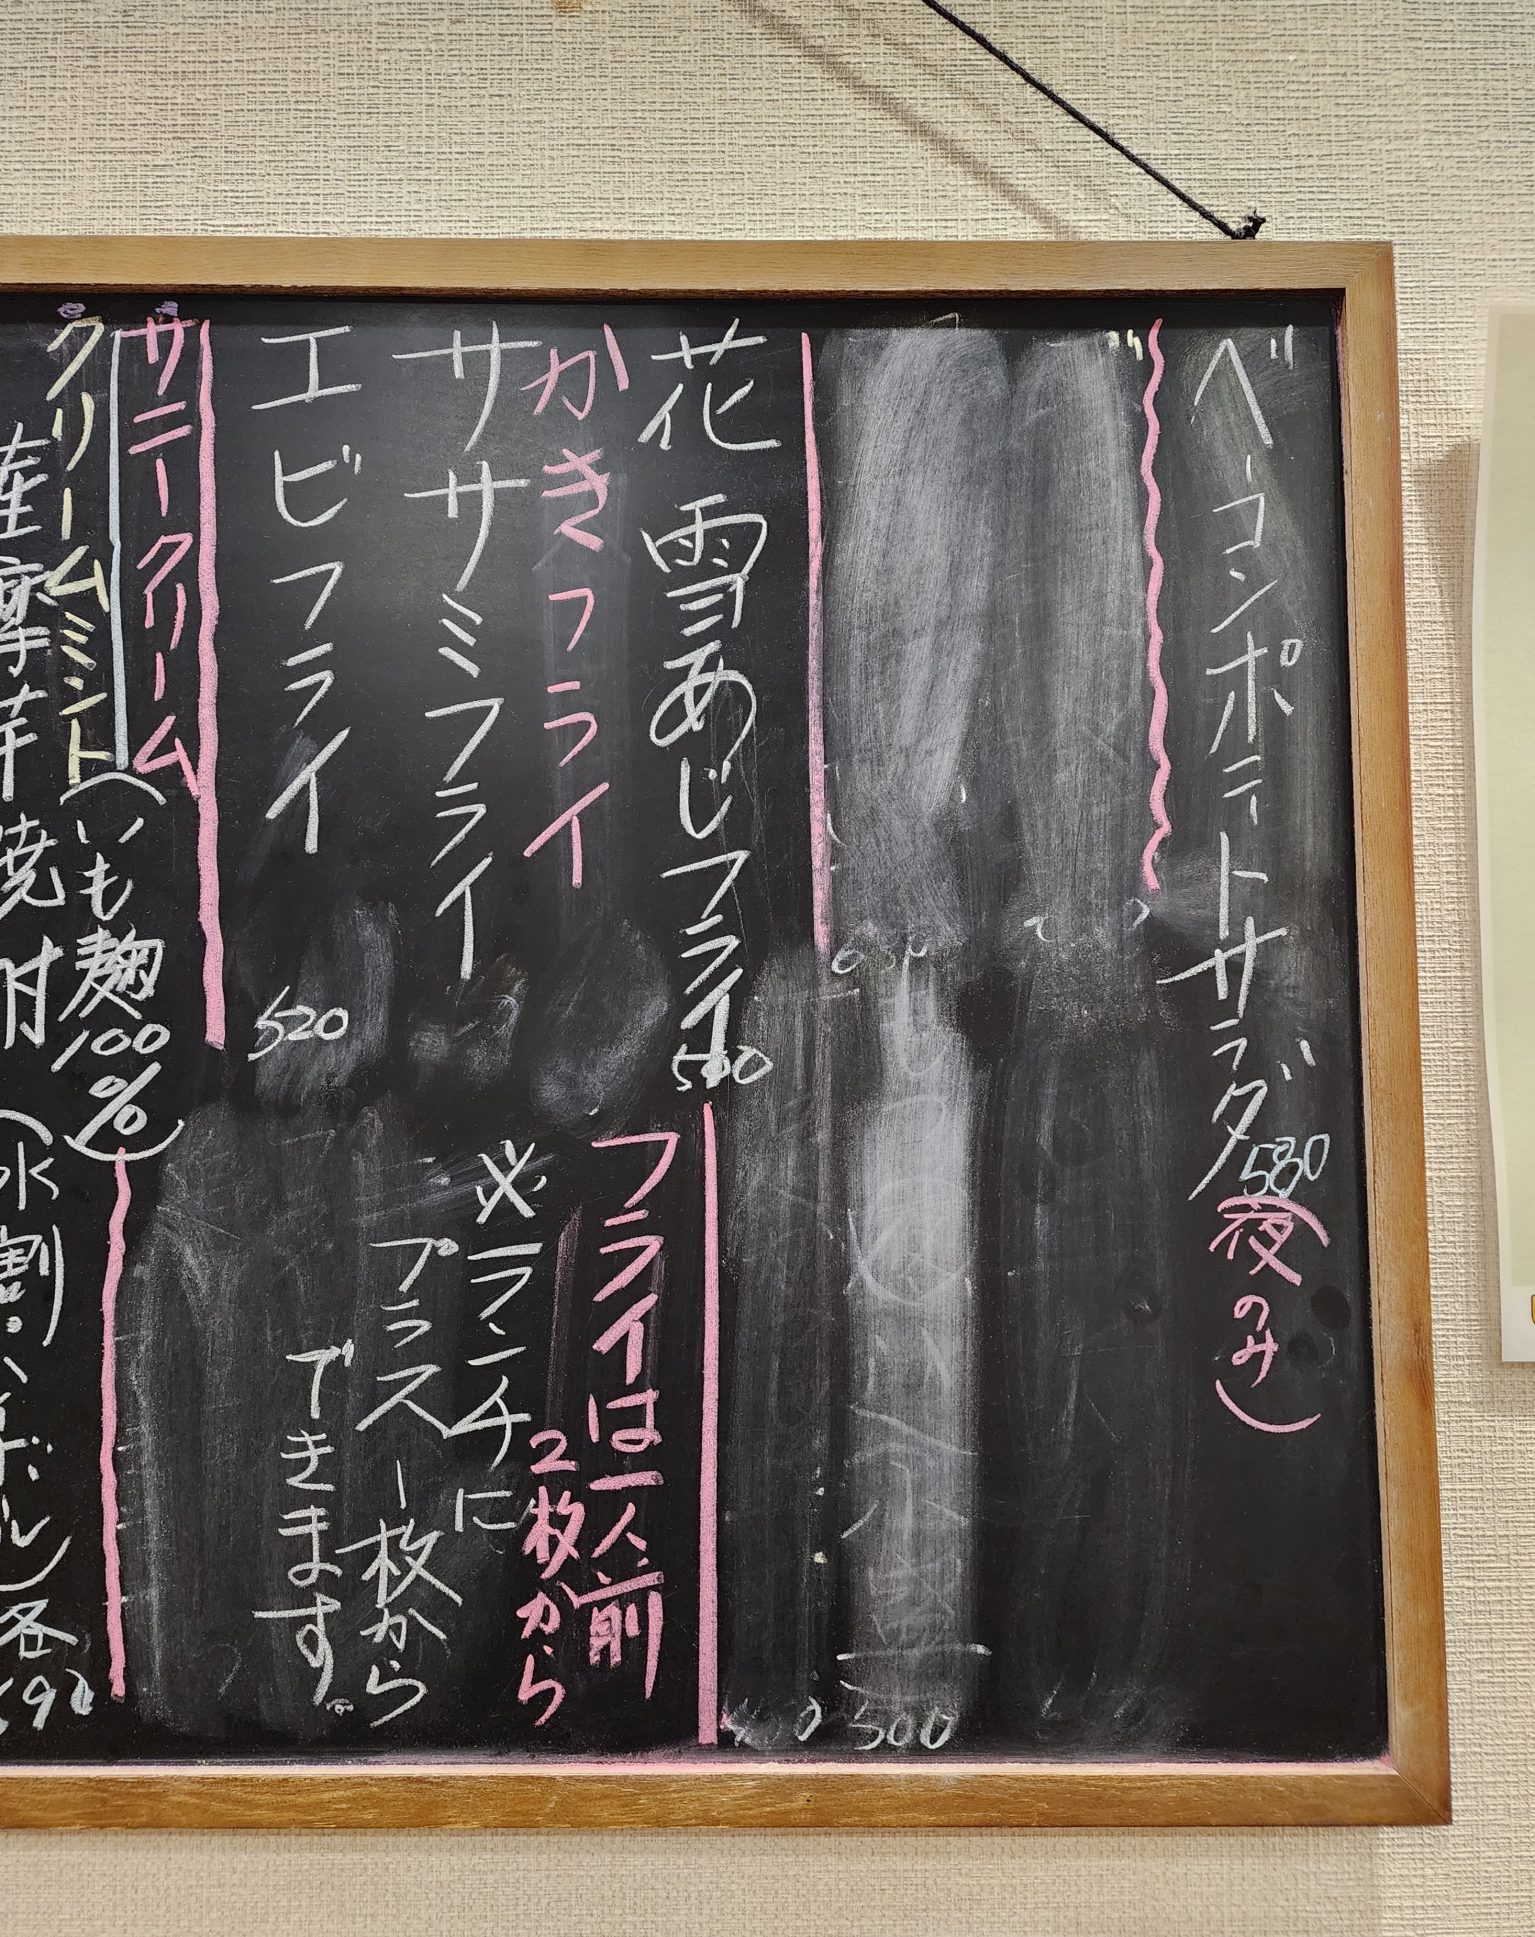 ベーコンポテトサラダ 580
(夜のみ)
500
花雪あじフライ
かきフライ
ササミフライ
エビフライ 520
フライは一人前
2枚から
※ランチに
プラス一枚から
できます。
サニークリーム
クリームミント(いも麹100%)
薩摩芋焼酎(水割・ハイボール)各